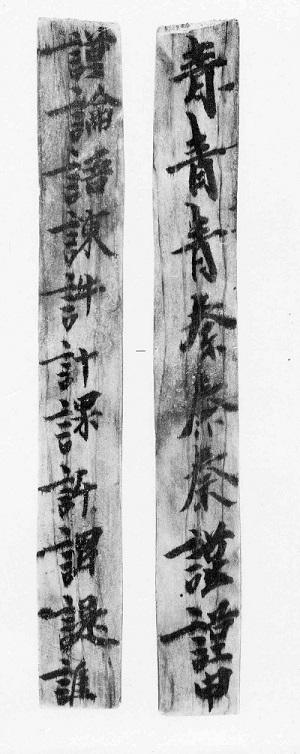 青青青秦秦秦謹謹申
謹論語諫許計課謂誰